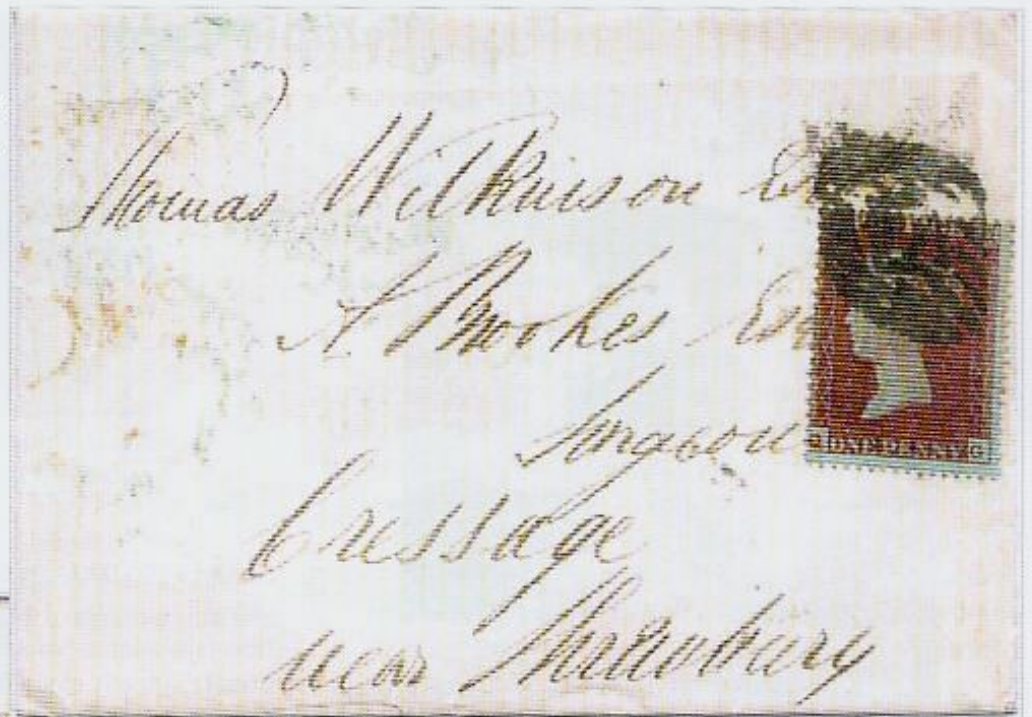 Thomas Wilkinson
A Brookes Esq
Cressage
near Shrewsbury
ONE PENNY G